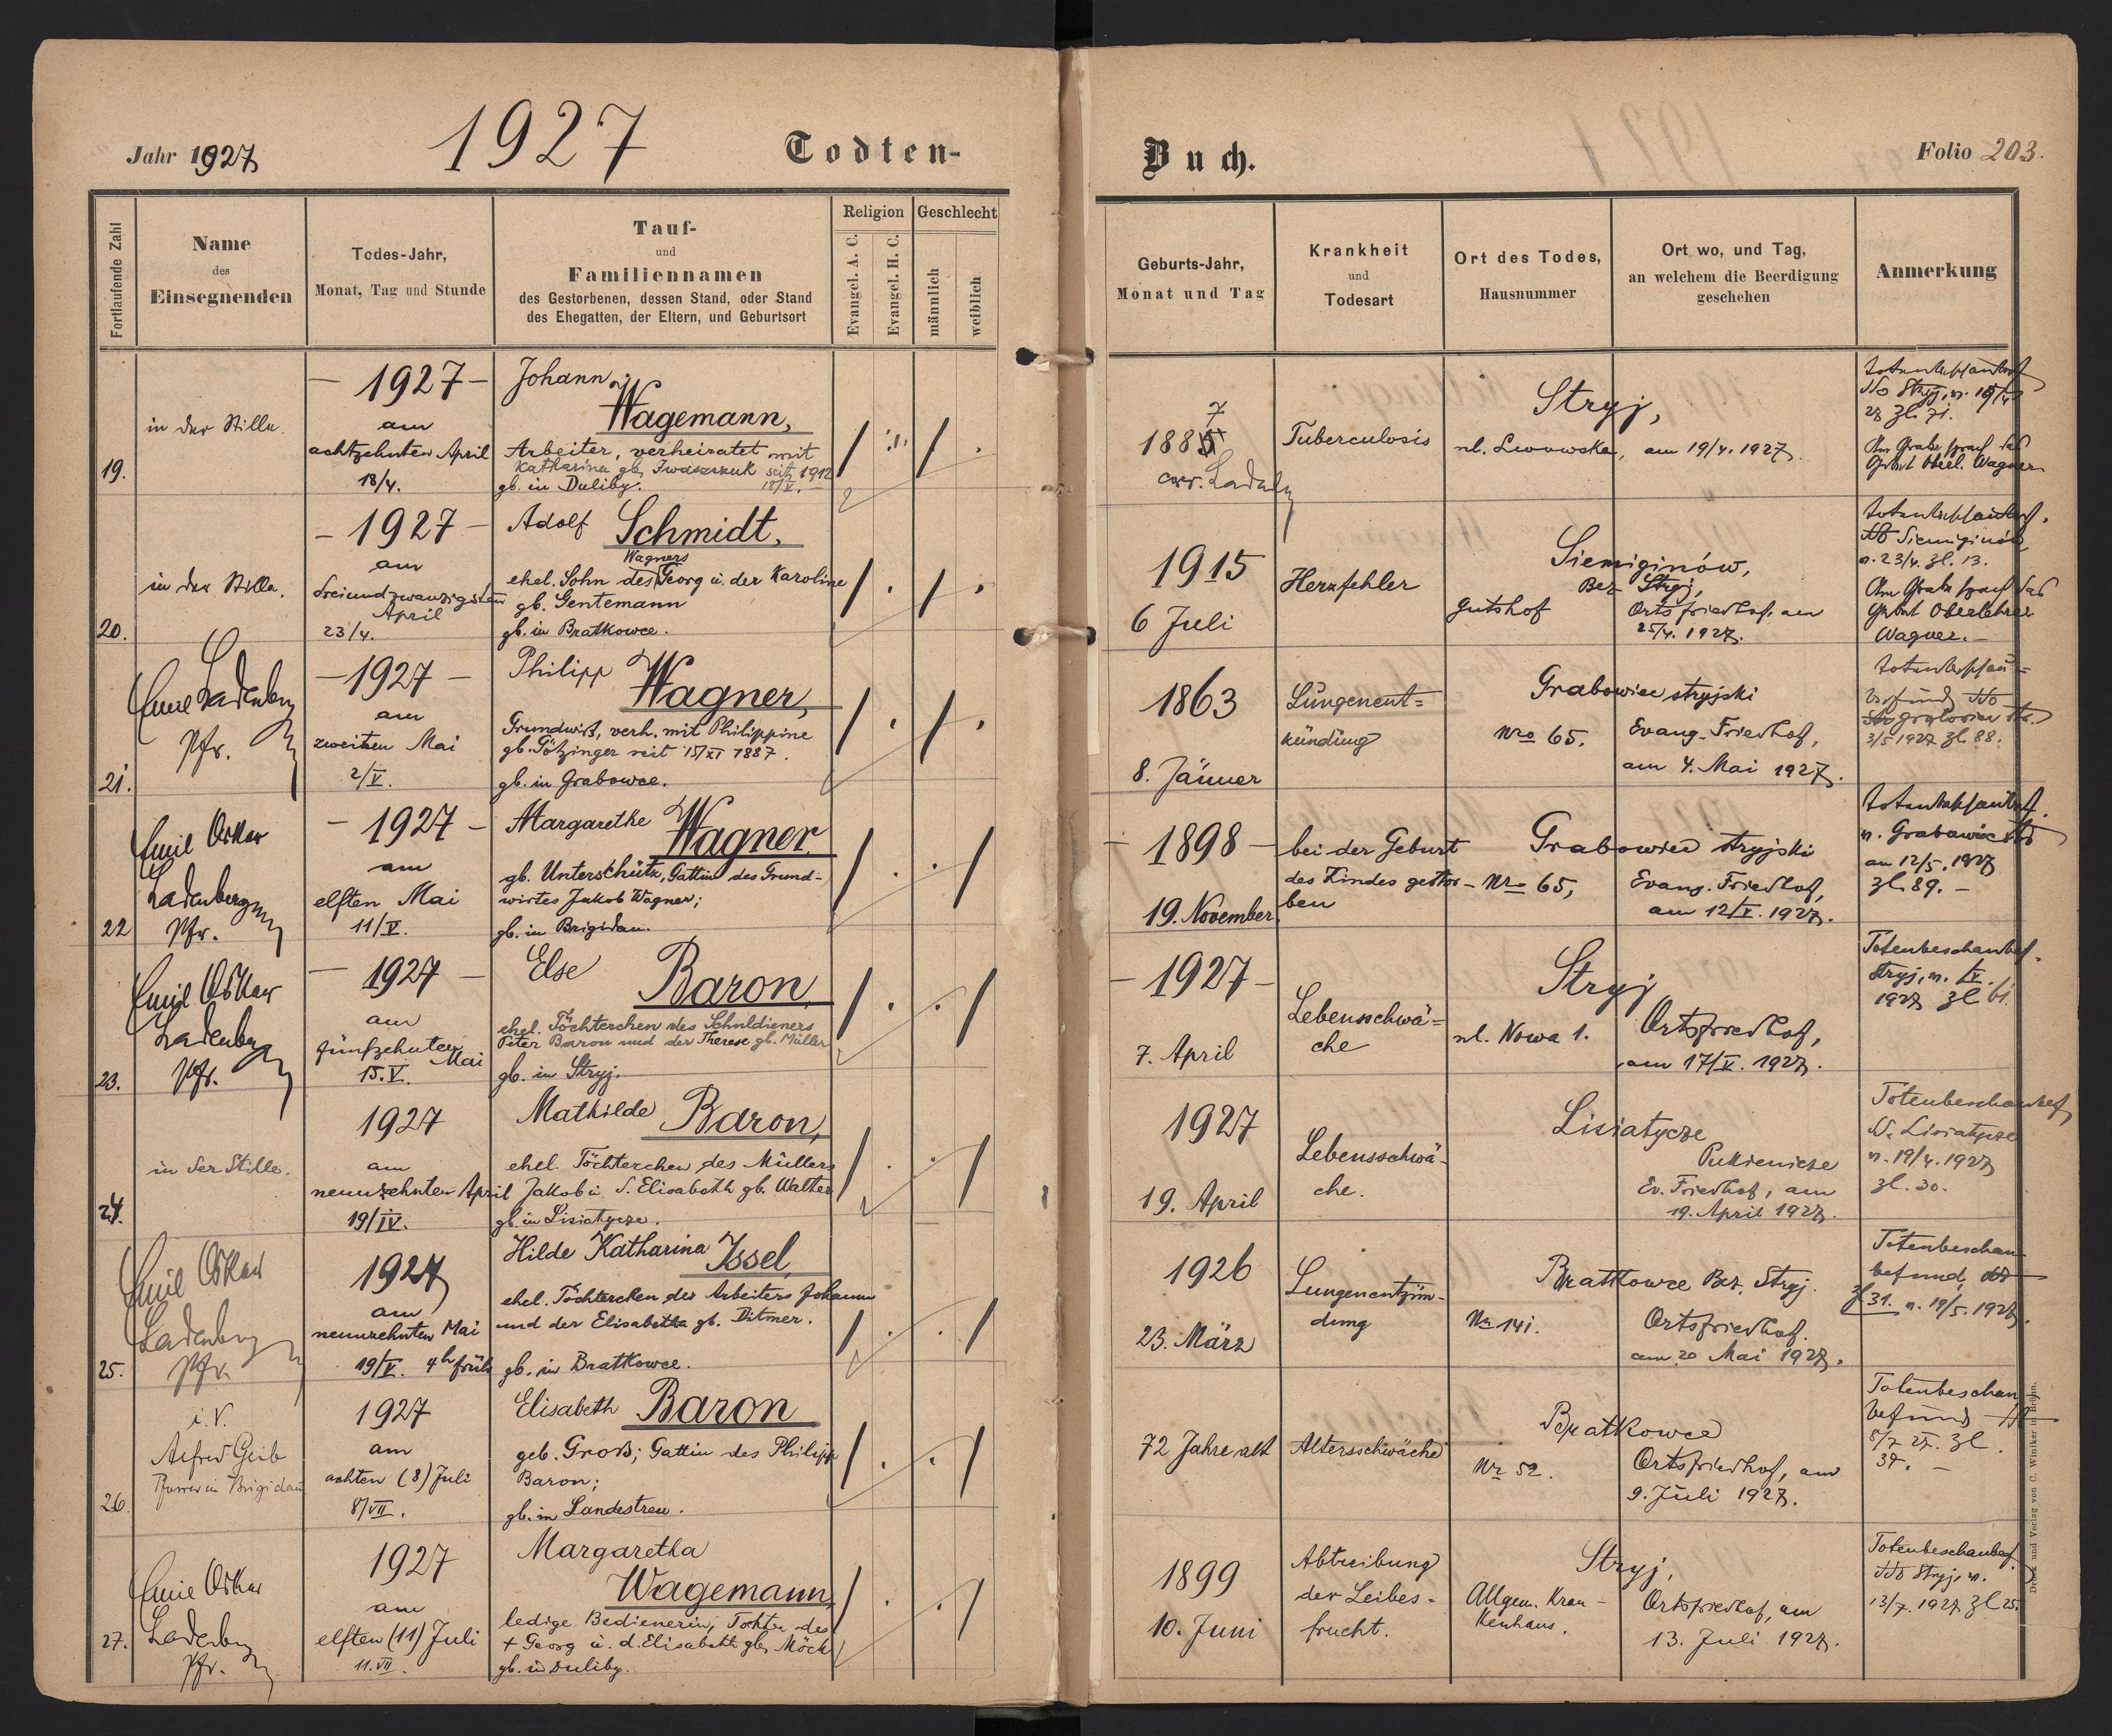 Jahr 1927
1927
Todten-
Buch.
Folio 203.
Fortlaufende Zahl
Name
des
Einsegnenden
Todes-Jahr,
Monat, Tag und Stunde
Tauf-
und
Familiennamen
des Gestorbenen, dessen Stand, oder Stand
des Ehegatten, der Eltern, und Geburtsort
Religion
Evangel. A. C.
Evangel. H. C.
Geschlecht
männlich
weiblich
Geburts-Jahr,
Monat und Tag
Krankheit
und
Todesart
Ort des Todes,
Hausnummer
Ort wo, und Tag,
an welchem die Beerdigung
geschehen
Anmerkung
19.
in der Stille.
- 1927 -
am
achtzehnten April
18/4.
Johann
Wagemann,
Arbeiter, verheiratet mit
Katharina gb. Iwaszczuk seit 1912
18/V.
gb. in Duliby.
7
1885
corr. Ladenbg
Tuberculosis
Stryj,
ul. Lwowska, am 19/4. 1927.
Am Grabe sprach das
Gebet Oberl. Wagner
20.
in der Stille.
- 1927 -
am
dreiundzwanzigsten
April
23/4.
Adolf Schmidt,
Wagners
ehel. Sohn des Georg u. der Karoline
gb. Gentemann
gb. in Bratkowce.
1915
6 Juli
Herzfehler
Siemiginów,
Bez. Stryj,
Gutshof
Ortsfriedhof, am
25/4. 1927.
n. 23/4. Zl. 13.
Am Grabe sprach das
Gebet Oberlehrer
Wagner. -
21.
Emil Ladenberg
Pfr.
- 1927 -
am
zweiten Mai
2/V.
Philipp
Wagner,
Grundwirt, verh. mit Philippine
gb. Götzinger seit 15/XI 1887.
gb. in Grabowce.
1863
8. Jänner
Lungenent=
zündung
Grabowiec stryjski
Nro 65.
Evang. Friedhof,
am 4. Mai 1927.
3/5 1927 Zl. 88.
22
Emil Oskar
Ladenberg
Pfr.
- 1927 -
am
elften Mai
11/V.
Margarethe Wagner
gb. Unterschütz, Gattin des Grund-
wirtes Jakob Wagner;
gb. in Brigidau.
- 1898 -
19. November
bei der Geburt
des Kindes gestor-
ben
Grabowiec stryjski
Nro 65,
Evang. Friedhof,
am 12/V. 1927.
am 12/5. 1927
Zl. 89. -
23.
Emil Oskar
Ladenberg
Pfr.
- 1927 -
am
fünfzehnten
Mai
15. V.
Else Baron,
ehel. Töchterchen des Schuldieners
Peter Baron und der Therese gb. Müller
gb. in Stryj.
- 1927 -
7. April
Lebensschwä=
che
Stryj
ul. Nowa 1.
Ortsfriedhof,
am 17/V. 1927.
Totenbeschaubef.
Stryj, n.
1927 Zl. 61.
24.
in der Stille.
1927
am
neunzehnten April
19/IV.
Mathilde Baron,
ehel. Töchterchen des Müllers
Jakob u. d. Elisabeth gb. Walter
gb. in Lisiatycze.
1927
19. April
Lebensschwä-
che.
Lisiatycze
Pukienicze
Ev. Friedhof, am
19. April 1927.
Totenbeschaubef
Lisiatycze
n. 19/4. 1927
Zl. 30.
25.
Emil Oskar
Ladenberg
Pfr.
1927
am
neunzehnten Mai
19/V. 4h früh
Hilde Katharina Issel,
ehel. Töchterchen des Arbeiters Johann
und der Elisabeth gb. Ditmer.
gb. in Bratkowce.
1926
23. März
Lungenentzün-
dung
Bratkowce Bez. Stryj.
Nr 141.
Ortsfriedhof.
am 20 Mai 1927.
Totenbeschau
befund,
Zl. 31. n. 19/5. 1927.
26.
i. V.
Alfred Geib
Pfarrer in Brigidau
1927
am
achten (8) Juli
8/VII.
Elisabeth Baron
geb. Groß; Gattin des Philipp
Baron;
gb. in Landestreu.
72 Jahre alt
Altersschwäche
Bratkowce
Nr 52.
Ortsfriedhof, am
9. Juli 1927.
Totenbeschau
befund
27. Zl.
27.
Emil Oskar
Ladenberg
Pfr.
1927
am
elften (11) Juli
11. VII.
Margaretha
Wagemann,
ledige Bedienerin, Tochter des
+ Georg u. d. Elisabeth gb. Möck
gb. in Duliby.
1899
10. Juni
Abtreibung
der Leibes-
frucht.
Stryj,
Allgem. Kran-
kenhaus.
Ortsfriedhof, am
13. Juli 1927.
Totenbeschaubef.
Stryj, n.
13/7. 1927. Zl. 25.
Druck und Verlag von C. Winiker in Brünn.